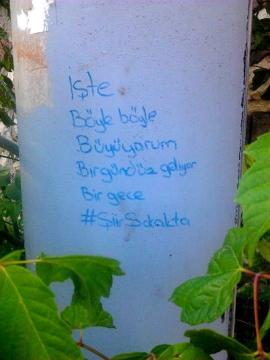 İşte
Böyle böyle
Büyüyorum
Bir gündüz geliyor
Bir gece
#ŞiirSokakta